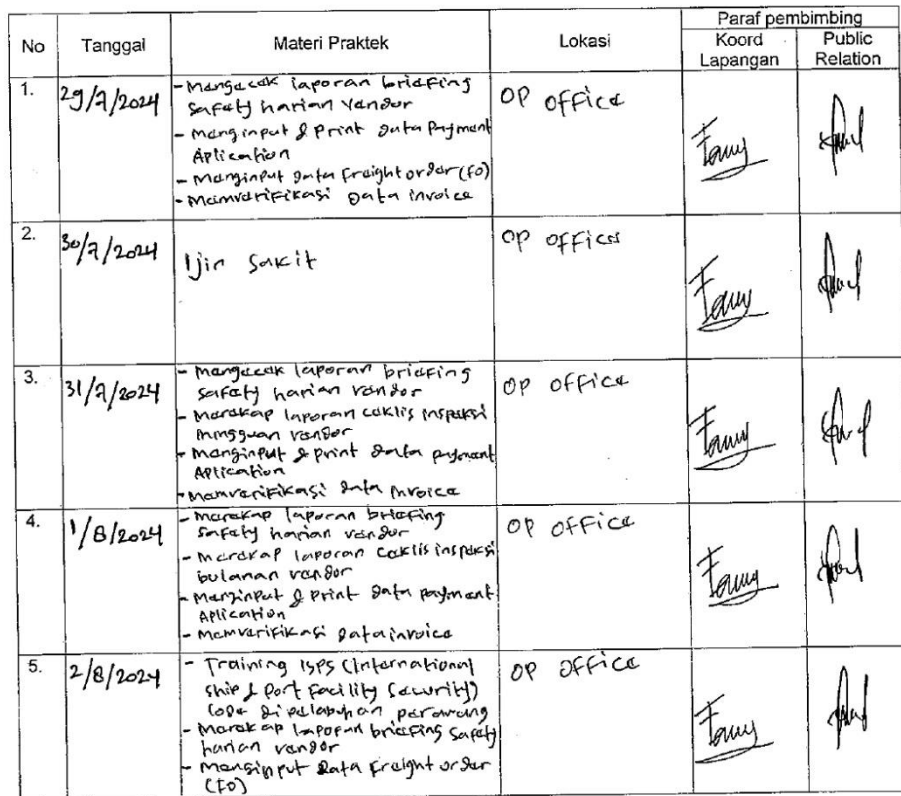 No Tanggal Materi Praktek Lokasi Paraf pembimbing
Koord Lapangan Public Relation
1. 29/7/2024 - Mengecek laporan briefing OP office
safety harian vendor
- Menginput & print data payment
Aplication
- Menginput data freight order (FO)
- Memverifikasi data invoice
2. 30/7/2024 Ijin sakit OP office
3. 31/7/2024 - Mengecek laporan briefing OP office
safety harian vendor
- Merekap laporan ceklis inspeksi
mingguan vendor
- Menginput & print data payment
Aplication
- Memverifikasi data invoice
4. 1/8/2024 - Merekap laporan briefing OP office
safety harian vendor
- Merekap laporan ceklis inspeksi
bulanan vendor
- Menginput & print data payment
Aplication
- Memverifikasi data invoice
5. 2/8/2024 - Training ISPS (International OP office
ship & port facility security)
code di pelabuhan perawang
- Merekap laporan briefing safety
harian vendor
- Menginput data freight order
(FO)